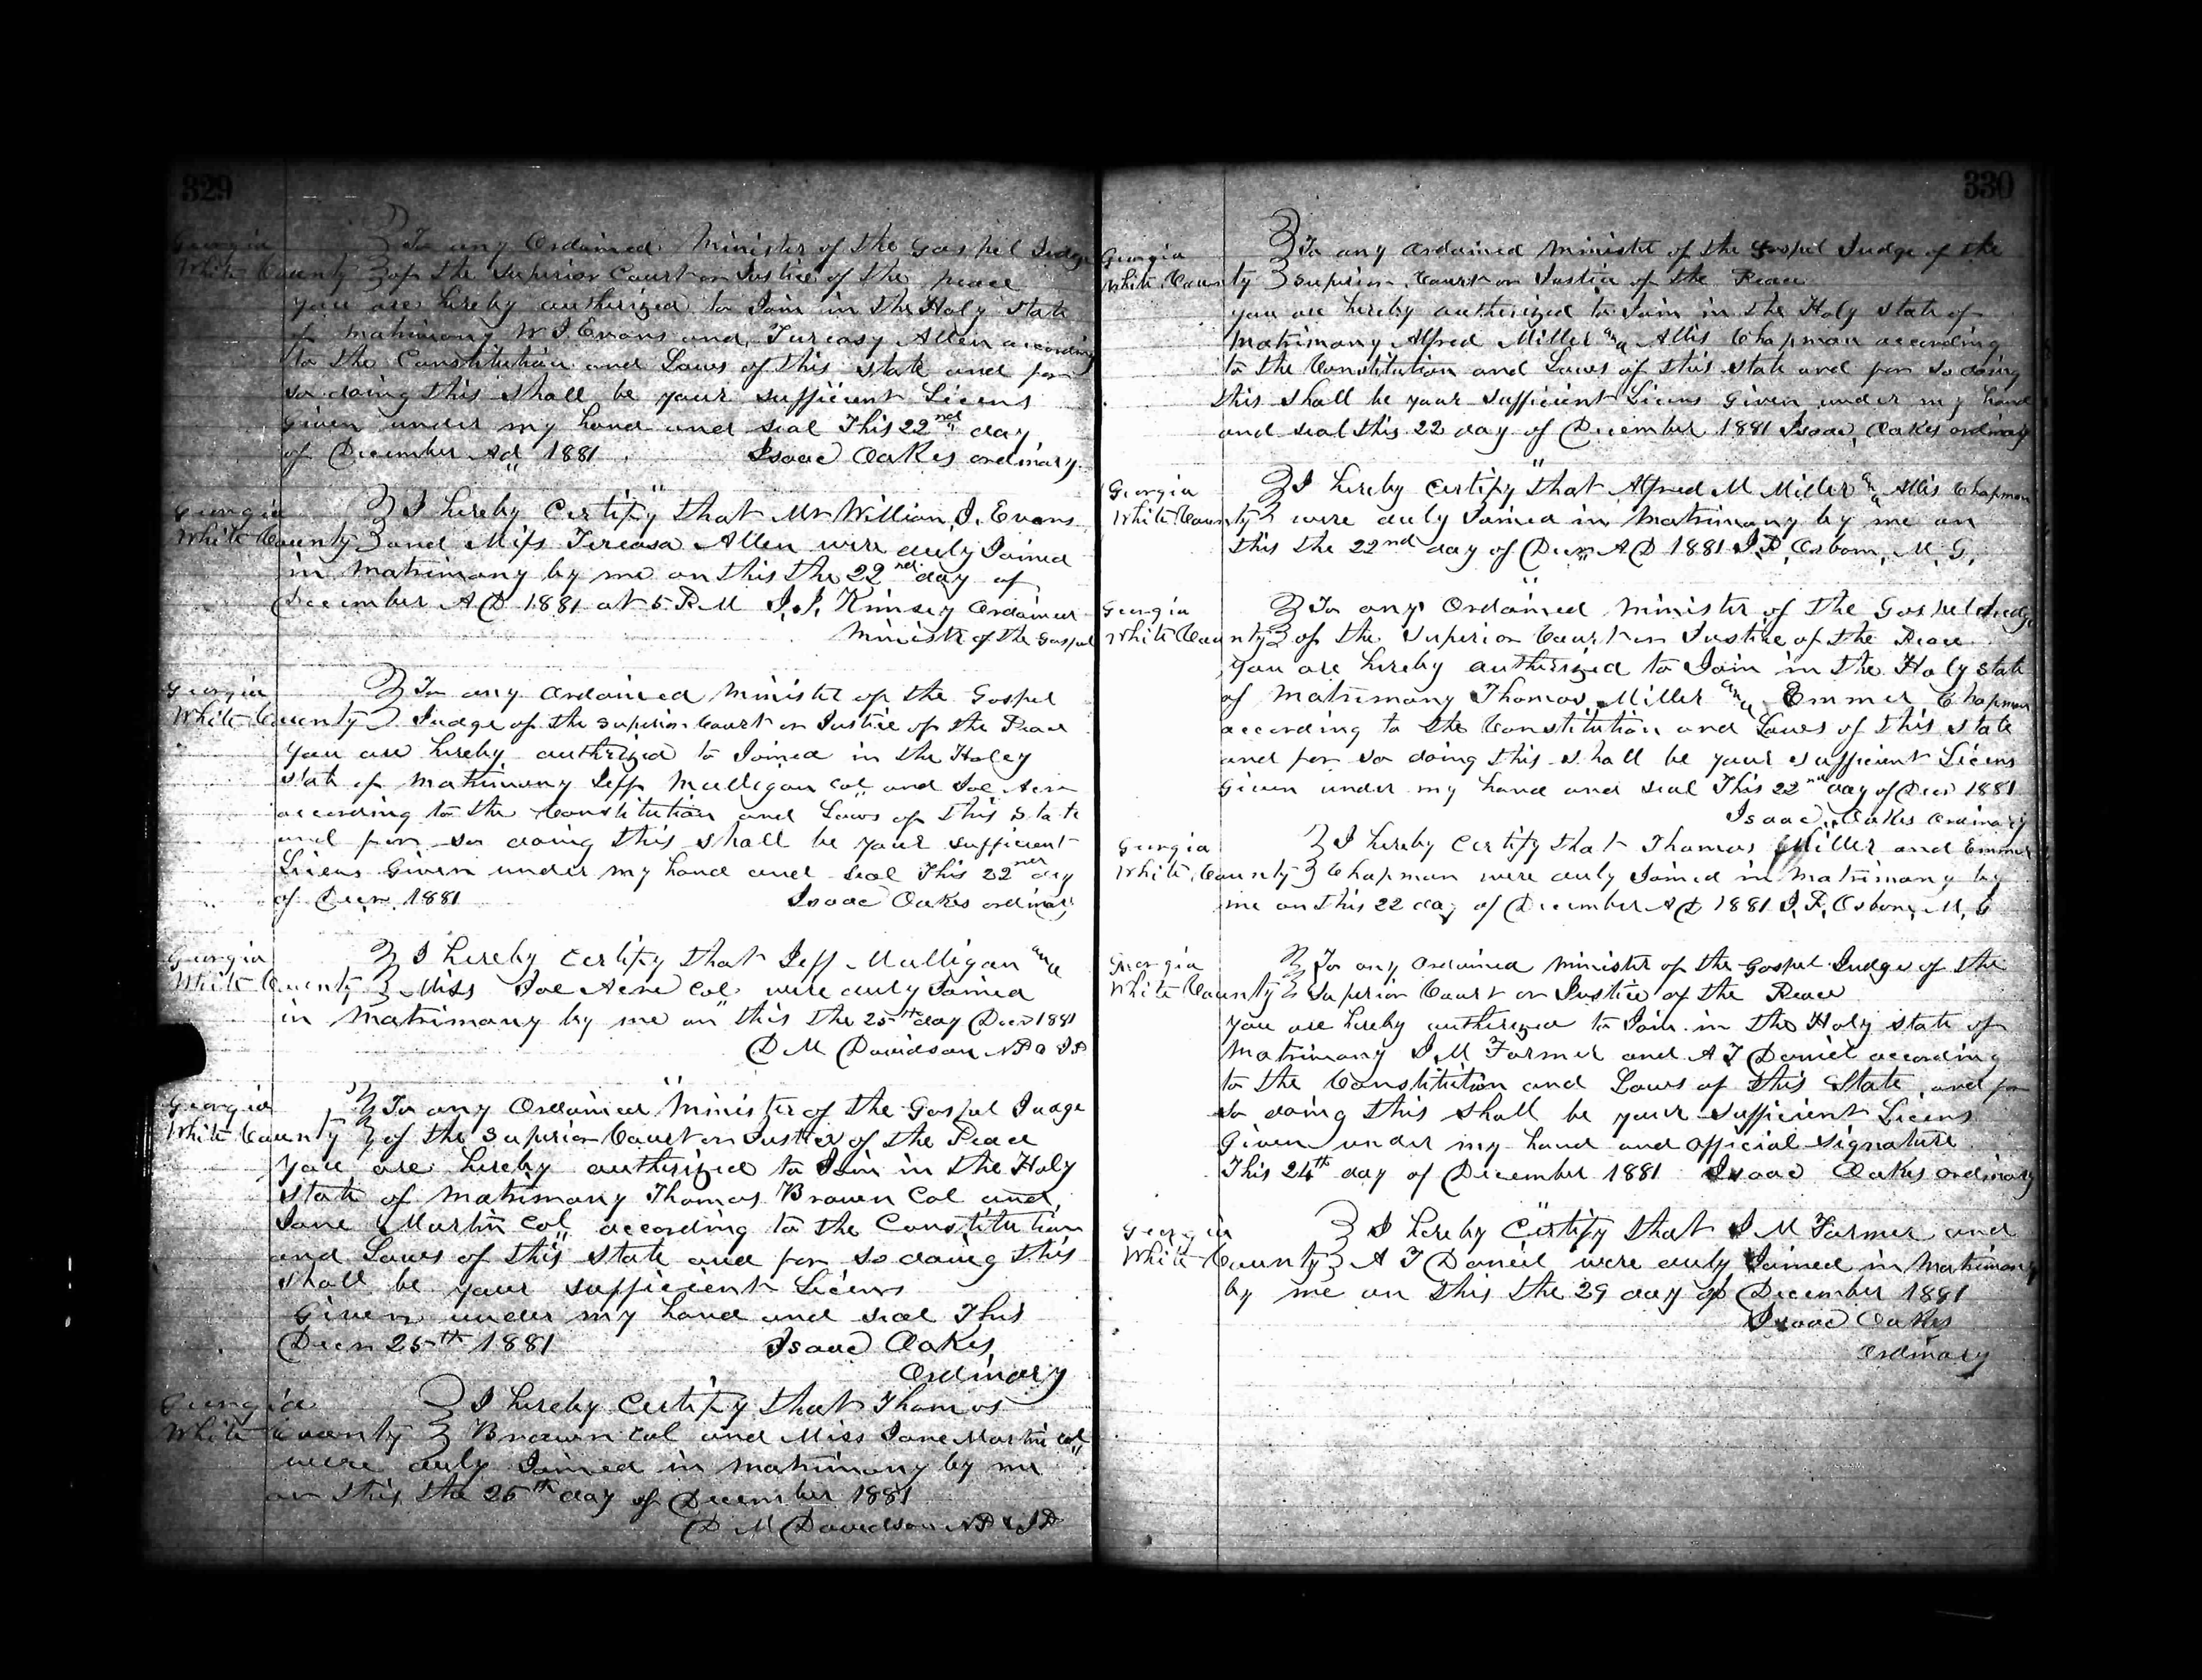 329
Georgia } To any Ordained Minister of the Gospel Judge
White County } of the Superior Court or Justice of the peace
you are hereby authorized to Join in the Holy State
of Matrimony W J Evans and Tureasy Allen according
to the Constitution and Laws of this state and for
so doing this shall be your sufficient Licens
Given under my hand and seal This 22nd day
of December Ad 1881 Isaac Oakes ordinary
Georgia } I hereby Certify that Mr William J. Evans
White County } and Miss Tereasa Allen were duly Joined
in Matrimony by me on this the 22nd day of
December AD 1881 at 5 P.M J. J. Kimsey Ordained
Minister of the Gospel
Georgia } To any Ordained Minister of the Gospel
White County } Judge of the Superior Court or Justice of the Peace
You are hereby authorized to Joined in the Holey
State of Matrimony Jeff Mulligan Col and
according to the Constitution and Laws of This State
and for so doing this shall be your sufficient
Licens Given under my hand and seal This 22nd day
of Decr 1881 Isaac Oakes ordinary
Georgia } I hereby Certify that Jeff Mulligan and
White County } Miss Col were duly Joined
in Matrimony by me on this the 25th day Decr 1881
D M Davidson NP & JP
Georgia } To any Ordained Minister of the Gospel Judge
White County } of the Superior Court or Justice of the Peace
You are hereby authorized to Join in the Holy
State of Matrimony Thomas Brown Col and
Jane Martin Col according to the Constitution
and Laws of this State and for so doing this
shall be your sufficient Licens
Given under my hand and seal This
Decr 25th 1881 Isaac Oakes
Ordinary
Georgia } I hereby Certify that Thomas
White County } Brown Col and Miss Jane Martin Col
were duly Joined in Matrimony by me
on this the 25th day of December 1881
D M Davidson NP & JP
330
Georgia } To any Ordained Minister of the Gospel Judge of the
White County } Superior Court or Justice of the Peace
you are hereby authorized to Join in the Holy State of
Matrimony Alfred Miller and Allis Chapman according
to the Constitution and Laws of this state and for so doing
this shall be your sufficient Licens Given under my hand
and seal this 22 day of December 1881 Isaac Oakes ordinary
Georgia } I hereby Certify that Alfred M Miller and Allis Chapman
White County } were duly Joined in Matrimony by me on
this the 22nd day of Decr AD 1881 J. P. Osborn, M. G.
Georgia } To any Ordained Minister of the Gospel Judge
White County } of the Superior Court or Justice of the Peace
You are hereby authorized to Join in the Holy State
of Matrimony Thomas Miller and Emmer Chapman
according to the Constitution and Laws of this State
and for so doing this shall be your sufficient Licens
Given under my hand and seal This 22nd day of Decr 1881
Isaac Oakes Ordinary
Georgia } I hereby Certify that Thomas Miller and Emmer
White County } Chapman were duly Joined in Matrimony by
me on this 22 day of December AD 1881 J. P. Osborn, M. G
Georgia } To any Ordained Minister of the Gospel Judge of the
White County } Superior Court or Justice of the Peace
You are hereby authorized to Join in the Holy State of
Matrimony J M Farmer and A J Daniel according
to the Constitution and Laws of this State and for
so doing this shall be your sufficient Licens
Given under my hand and official signature
This 24th day of December 1881 Isaac Oakes ordinary
Georgia } I hereby Certify that J M Farmer and
White County } A J Daniel were duly Joined in Matrimony
by me on this the 29 day of December 1881
Isaac Oakes
Ordinary